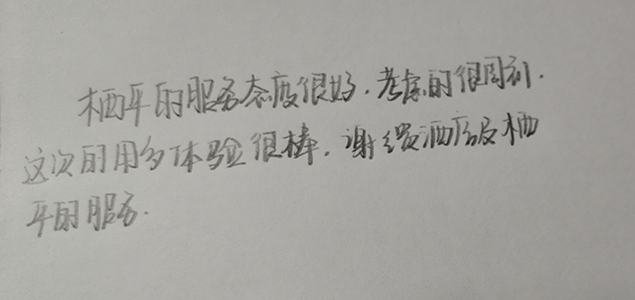 栖平的服务态度很好，考虑的很周到.
这次的用乡体验很棒，谢缀酒店及栖
平的服务.